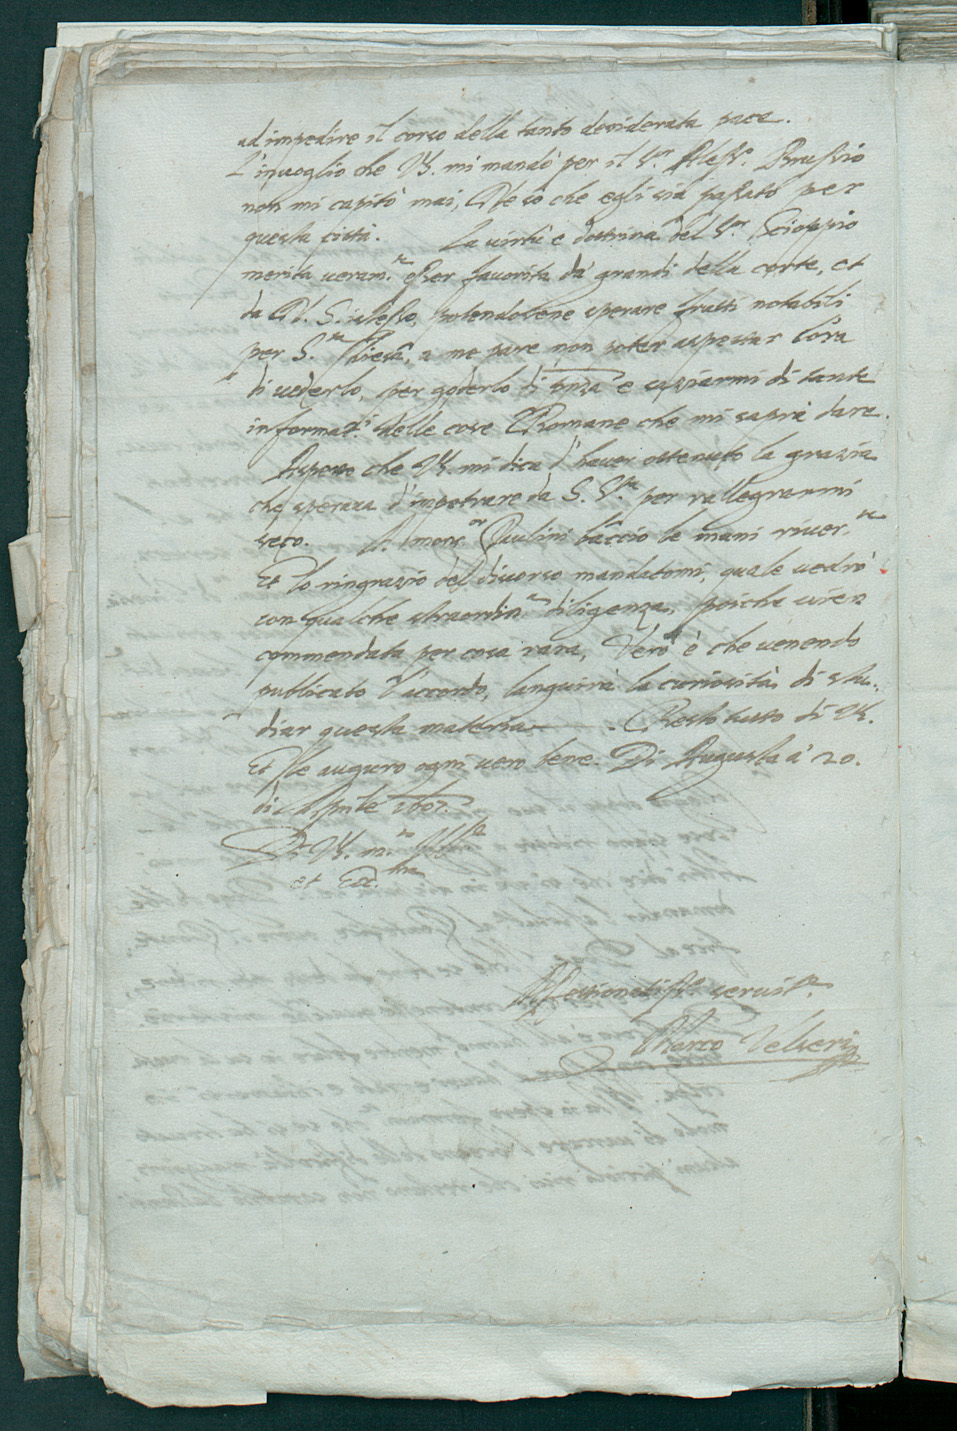 ad impedire il corso della tanto desiderata pace.
L'inuoglio che VS. mi mandò per il S.r Aless.o Brussio
non mi capitò mai, Ne sò che egli sia passato per
questa città. La uirtù e dottrina del S.r Scioppio
merita ueram.te esser fauorita dà grandi della corte, et
da N. S. istesso, potendosene sperare frutti notabili
per S.ta Chiesa, a me pare non poter aspettar l'ora
di uederlo, per goderlo di pnza e saziarmi di tante
informat.i delle cose Romane che mi saprà dare.
Aspetto che VS. mi dica d'hauer ottenuto la grazia
che speraua d'impetrare da S. S.tà per rallegrarmi
seco. A mons.or Paulini baccio le mani riuer.te
Et lo ringrazio del discorso mandatomi, quale uedrò
con qualche straordin.a diligenza, poiche uien
commendata per cosa rara, Vero è che uenendo
publicato l'accordo, languirà la curiosità di stu-
diar questa materia. Resto tutto di VS.
Et le auguro ogni uero bene. Di Augusta à 20.
di Aprile 1607.
Di VS. m.to Ill.re
et Ecc.ma
Affezionatiss.o seruit.re
Marco Velseri